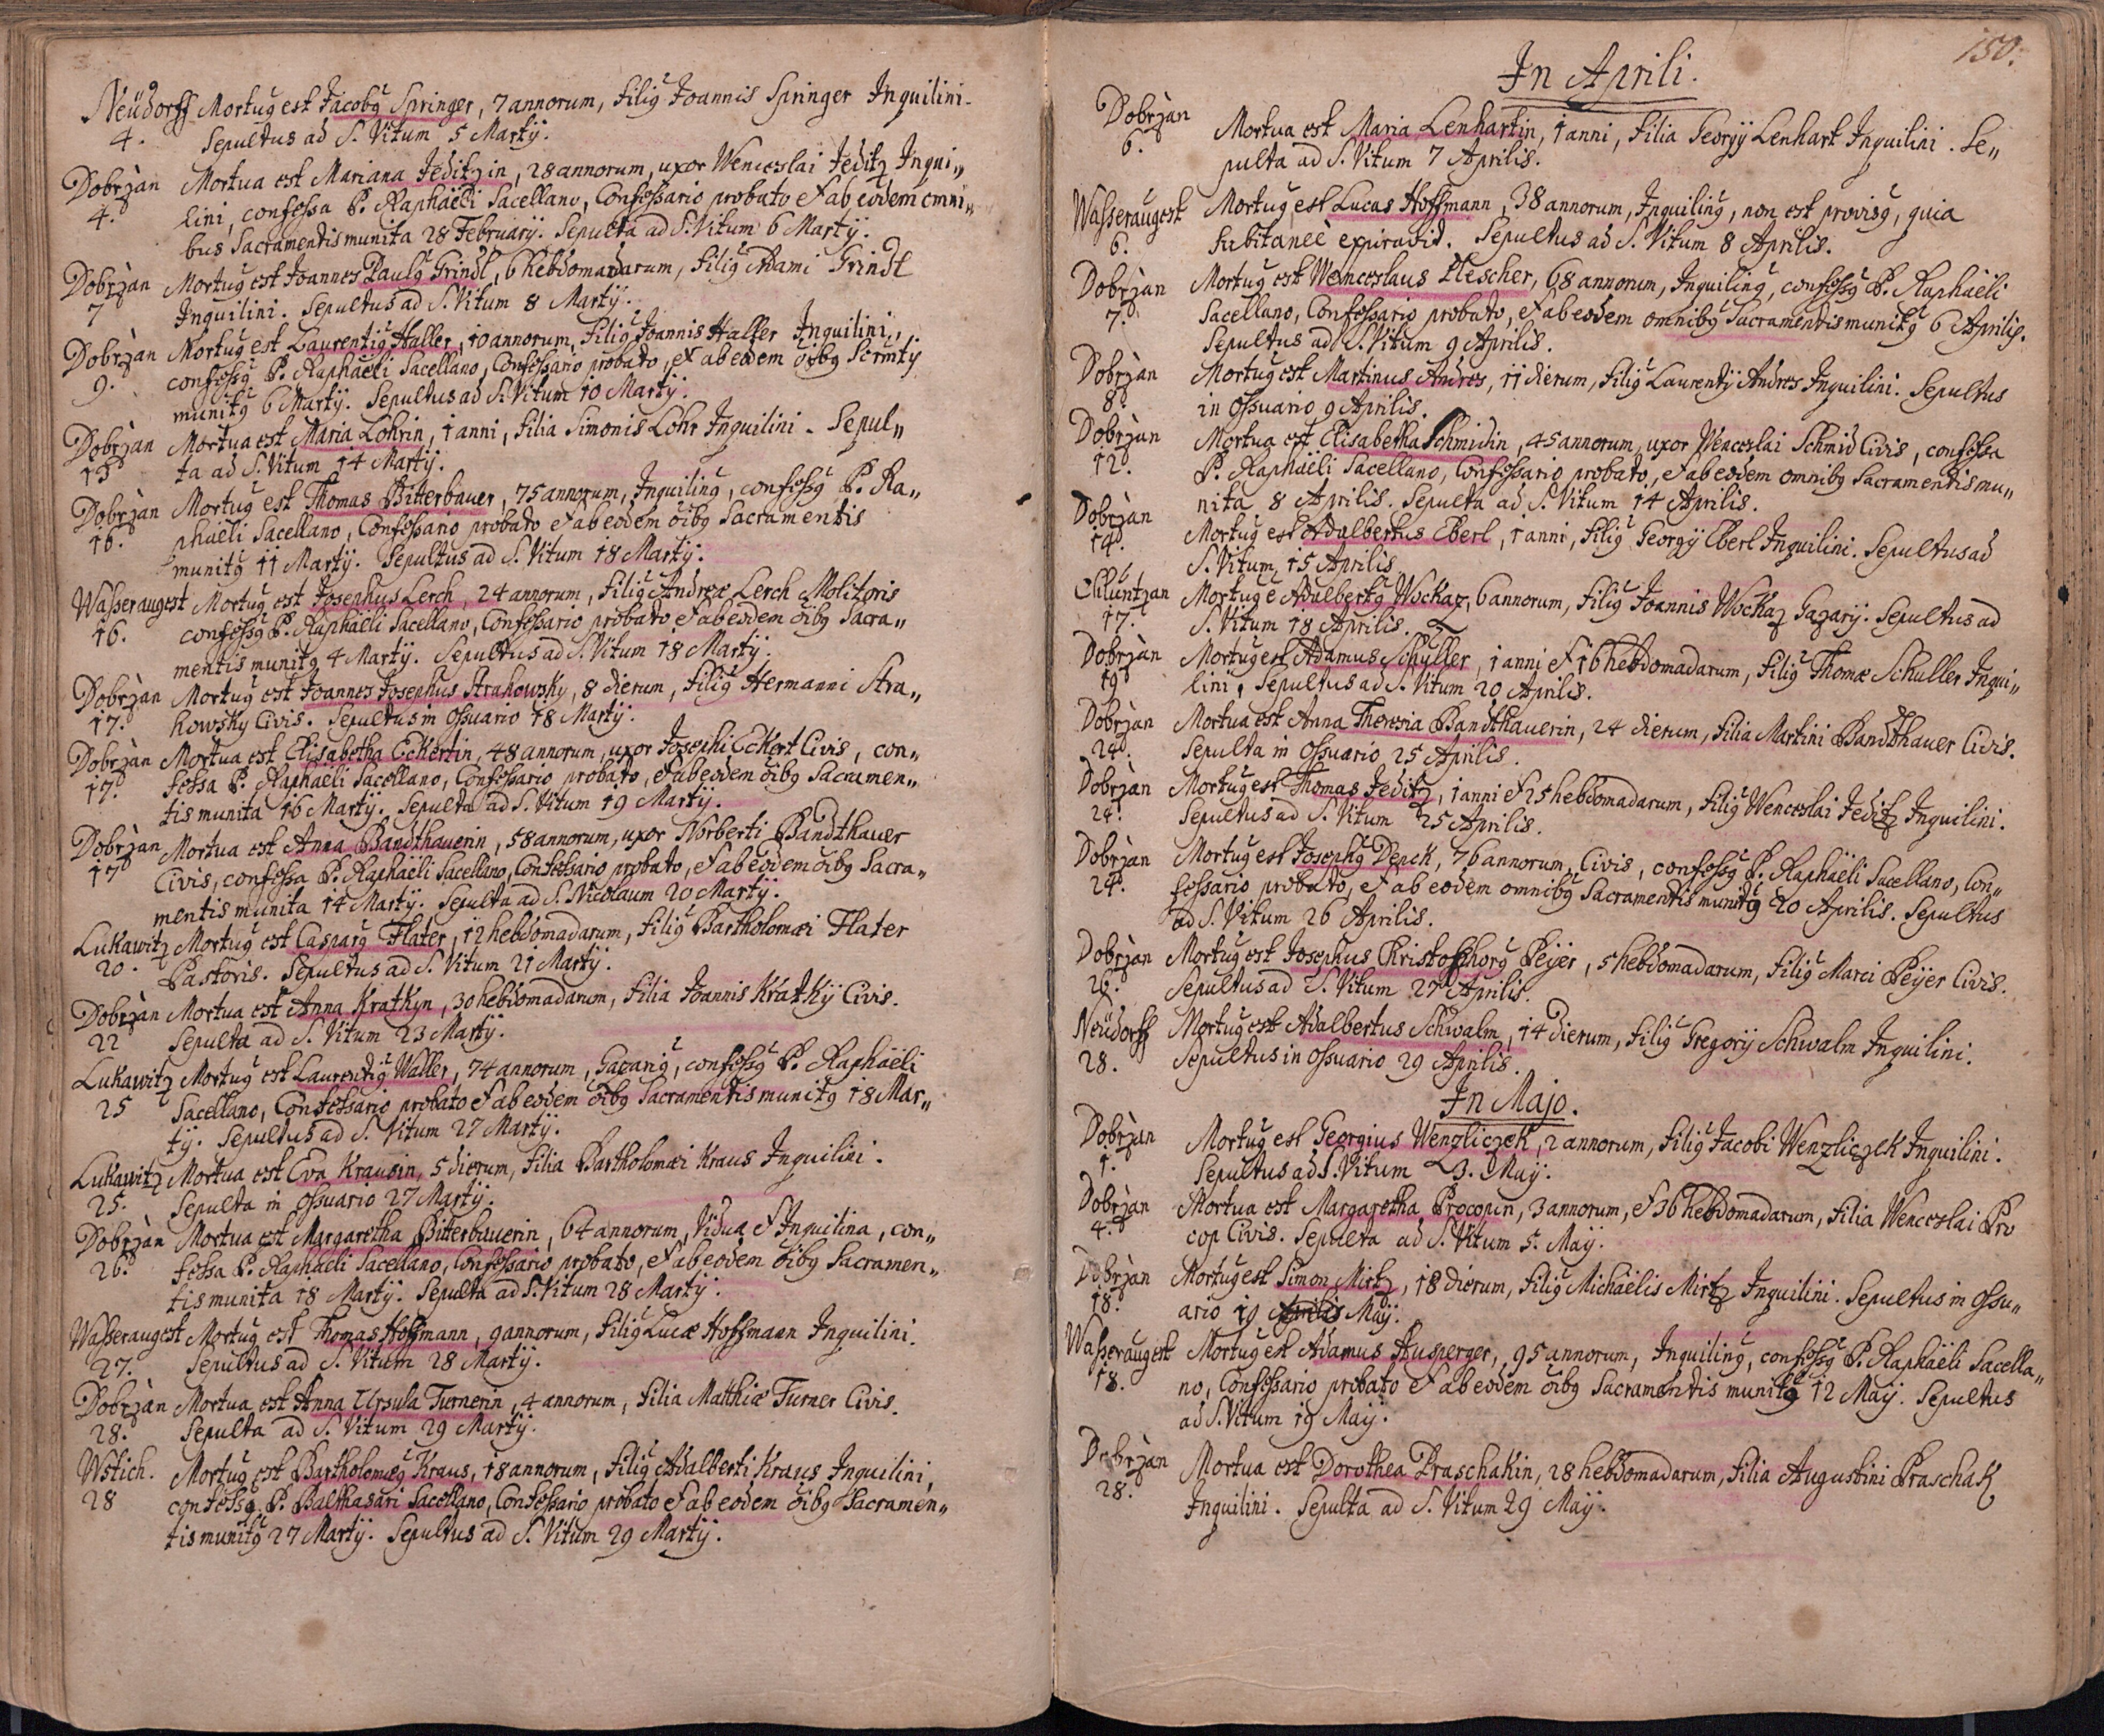 Neüdorff Mortuꝯ est Jacobꝯ Springer, 7 annorum, filiꝯ Joannis Springer Inquilini.
4. Sepultus ad S. Vitum 5 Martij.
Dobrzan Mortua est Mariana Jeditzin, 28 annorum, uxor Wenceslai Jeditz Inqui„
4. lini, confessa P. Raphaëli Sacellano, Confessario probato et ab eodem omni„
bus Sacramentis munita 28 Februarij. Sepulta ad S. Vitum 6 Martij.
Dobrzan Mortuꝯ est Joannes Paulꝯ Grindl, 6 hebdomadarum, filiꝯ Adami Grindl
7 Inquilini. Sepultus ad S. Vitum 8 Martij.
Dobrzan Mortuꝯ est Laurentiꝯ Haller, 10 annorum, filiꝯ Joannis Haller Inquilini,
9. confessꝯ P. Raphaëli Sacellano, Confessario probato, et ab eodem oibꝯ Scrmty
munitꝯ 6 Martij. Sepultus ad S. Vitum 10 Martij.
Dobrzan Mortua est Maria Lohrin, 1 anni, filia Simonis Lohr Inquilini. Sepul„
13 ta ad S. Vitum 14 Martij.
Dobrzan Mortuꝯ est Thomas Bitterbauer, 75 annorum, Inquilinꝯ, confessꝯ P. Ra„
16. phaëli Sacellano, Confessario probato et ab eodem oibꝯ Sacramentis
munitꝯ 11 Martij. Sepultus ad S. Vitum 18 Martij.
Wasseraugest Mortuꝯ est Josephus Lerch, 24 annorum, filiꝯ Andreæ Lerch Molitoris
16. confessꝯ P. Raphaëli Sacellano, Confessario probato et ab eodem oibꝯ Sacra„
mentis munitꝯ 4 Martij. Sepultus ad S. Vitum 18 Martij.
Dobrzan Mortuꝯ est Joannes Josephus Strahowsky, 8 dierum, filiꝯ Hermanni Stra„
17. howsky Civis. Sepultus in Ossuario 18 Martij.
Dobrzan Mortua est Elisabetha Eckertin, 48 annorum, uxor Josephi Eckert Civis, con„
17. fessa P. Raphaëli Sacellano, Confessario probato, et ab eodem oibꝯ Sacramen„
tis munita 16 Martij. Sepulta ad S. Vitum 19 Martij.
Dobrzan Mortua est Anna Bandthauerin, 58 annorum, uxor Norberti Bandthauer
17 Civis, confessa P. Raphaëli Sacellano, Confessario probato, et ab eodem oibꝯ Sacra„
mentis munita 14 Martij. Sepulta ad S. Nicolaum 20 Martij.
Lukawitz Mortuꝯ est Casparꝯ Flater, 12 hebdomadarum, filiꝯ Bartholomæi Flater
20. Pastoris. Sepultus ad S. Vitum 21 Martij.
Dobrzan Mortua est Anna Kratkyn, 30 hebdomadarum, filia Joannis Kratkij Civis.
22 Sepulta ad S. Vitum 23 Martij.
Lukawitz Mortuꝯ est Laurentiꝯ Waller, 74 annorum, Gazariꝯ, confessꝯ P. Raphaëli
25 Sacellano, Confessario probato et ab eodem oibꝯ Sacramentis munitꝯ 18 Mar„
tij. Sepultus ad S. Vitum 27 Martij.
Lukawitz Mortua est Eva Krausin, 5 dierum, filia Bartholomæi Kraus Inquilini.
25. Sepulta in Ossuario 27 Martij.
Dobrzan Mortua est Margaretha Bitterbauerin, 64 annorum, Vidua et Inquilina, con„
26. fessa P. Raphaëli Sacellano, Confessario probato, et ab eodem oibꝯ Sacramen„
tis munita 18 Martij. Sepulta ad S. Vitum 28 Martij.
Wasseraugest Mortuꝯ est Thomas Hoffmann, 9 annorum, filiꝯ Lucæ Hoffmann Inquilini.
27. Sepultus ad S. Vitum 28 Martij.
Dobrzan Mortua est Anna Ursula Turnerin, 4 annorum, filia Matthiæ Turner Civis.
28. Sepulta ad S. Vitum 29 Martij.
Wstich. Mortuꝯ est Bartholomeꝯ Kraus, 18 annorum, filiꝯ Adalberti Kraus Inquilini,
28 confessꝯ P. Balthasari Sacellano, Confessario probato et ab eodem oibꝯ Sacramen„
tis munitꝯ 27 Martij. Sepultus ad S. Vitum 29 Martij.
150.
In Aprili.
Dobrzan Mortua est Maria Lenhartin, 1 anni, filia Georgij Lenhart Inquilini. Se„
6. pulta ad S. Vitum 7 Aprilis.
Wasseraugest Mortuꝯ est Lucas Hoffmann, 38 annorum, Inquilinꝯ, non est provisꝯ, quia
6. subitaneè expiravit. Sepultus ad S. Vitum 8 Aprilis.
Dobrzan Mortuꝯ est Wenceslaus Flescher, 68 annorum, Inquilinꝯ, confessꝯ P. Raphaëli
7. Sacellano, Confessario probato, et ab eodem omnibꝯ Sacramentis munitꝯ 6 Aprilis.
Sepultus ad S. Vitum 9 Aprilis.
Dobrzan Mortuꝯ est Martinus Andres, 11 dierum, filiꝯ Laurentij Andres Inquilini. Sepultus
8. in Ossuario 9 Aprilis.
Dobrzan Mortua est Elisabetha Schmidin, 45 annorum, uxor Venceslai Schmid Civis, confessa
12. P. Raphaëli Sacellano, Confessario probato, et ab eodem omnibꝯ Sacramentis mu„
nita 8 Aprilis. Sepulta ad S. Vitum 14 Aprilis.
Dobrzan Mortuꝯ est Adalbertus Eberl, 1 anni, filiꝯ Georgij Eberl Inquilini. Sepultus ad
14. S. Vitum 15 Aprilis.
Chluntzan Mortuꝯ e Adalbertꝯ Wockaz, 6 annorum, filiꝯ Joannis Wockaz Gazarij. Sepultus ad
17. S. Vitum 18 Aprilis.
Dobrzan Mortuꝯ est Adamus Schuller, 1 anni et 16 hebdomadarum, filiꝯ Thomæ Schuller Inqui„
19 lini. Sepultus ad S. Vitum 20 Aprilis.
Dobrzan Mortua est Anna Theresia Bandthauerin, 24 dierum, filia Martini Bandthauer Civis.
24. Sepulta in Ossuario 25 Aprilis.
Dobrzan Mortuꝯ est Thomas Jeditz, 1 anni et 25 hebdomadarum, filiꝯ Wenceslai Jeditz Inquilini.
24. Sepultus ad S. Vitum 25 Aprilis.
Dobrzan Mortuꝯ est Josephꝯ Denck, 76 annorum, Civis, confessꝯ P. Raphaëli Sacellano, Con„
24. fessario probato, et ab eodem omnibꝯ Sacramentis munitꝯ 20 Aprilis. Sepultus
ad S. Vitum 26 Aprilis.
Dobrzan Mortuꝯ est Josephus Christophorꝯ Peijer, 5 hebdomadarum, filiꝯ Marci Peijer Civis.
26. Sepultus ad S. Vitum 27 Aprilis.
Neüdorff Mortuꝯ est Adalbertus Schwalm, 14 dierum, filiꝯ Gregorij Schwalm Inquilini.
28. Sepultus in Ossuario 29 Aprilis.
In Majo.
Dobrzan Mortuꝯ est Georgius Wenzliczek, 2 annorum, filiꝯ Jacobi Wenzliczek Inquilini.
1. Sepultus ad S. Vitum 3. Maij.
Dobrzan Mortua est Margaretha Procopin, 3 annorum, et 36 hebdomadarum, filia Wenceslai Pro
4. cop Civis. Sepulta ad S. Vitum 5. Maij.
Dobrzan Mortuꝯ est Simon Mirtz, 18 dierum, filiꝯ Michaëlis Mirtz Inquilini. Sepultus in Ossu„
18. ario 19 Aprilis Maij.
Wasseraugest Mortuꝯ est Adamus Ausperger, 95 annorum, Inquilinꝯ, confessꝯ P. Raphaëli Sacella„
18. no, Confessario probato et ab eodem oibꝯ Sacramentis munitꝯ 12 Maij. Sepultus
ad S. Vitum 19 Maij.
Dobrzan Mortua est Dorothea Praschakin, 28 hebdomadarum, filia Augustini Praschak
28. Inquilini. Sepulta ad S. Vitum 29 Maij.